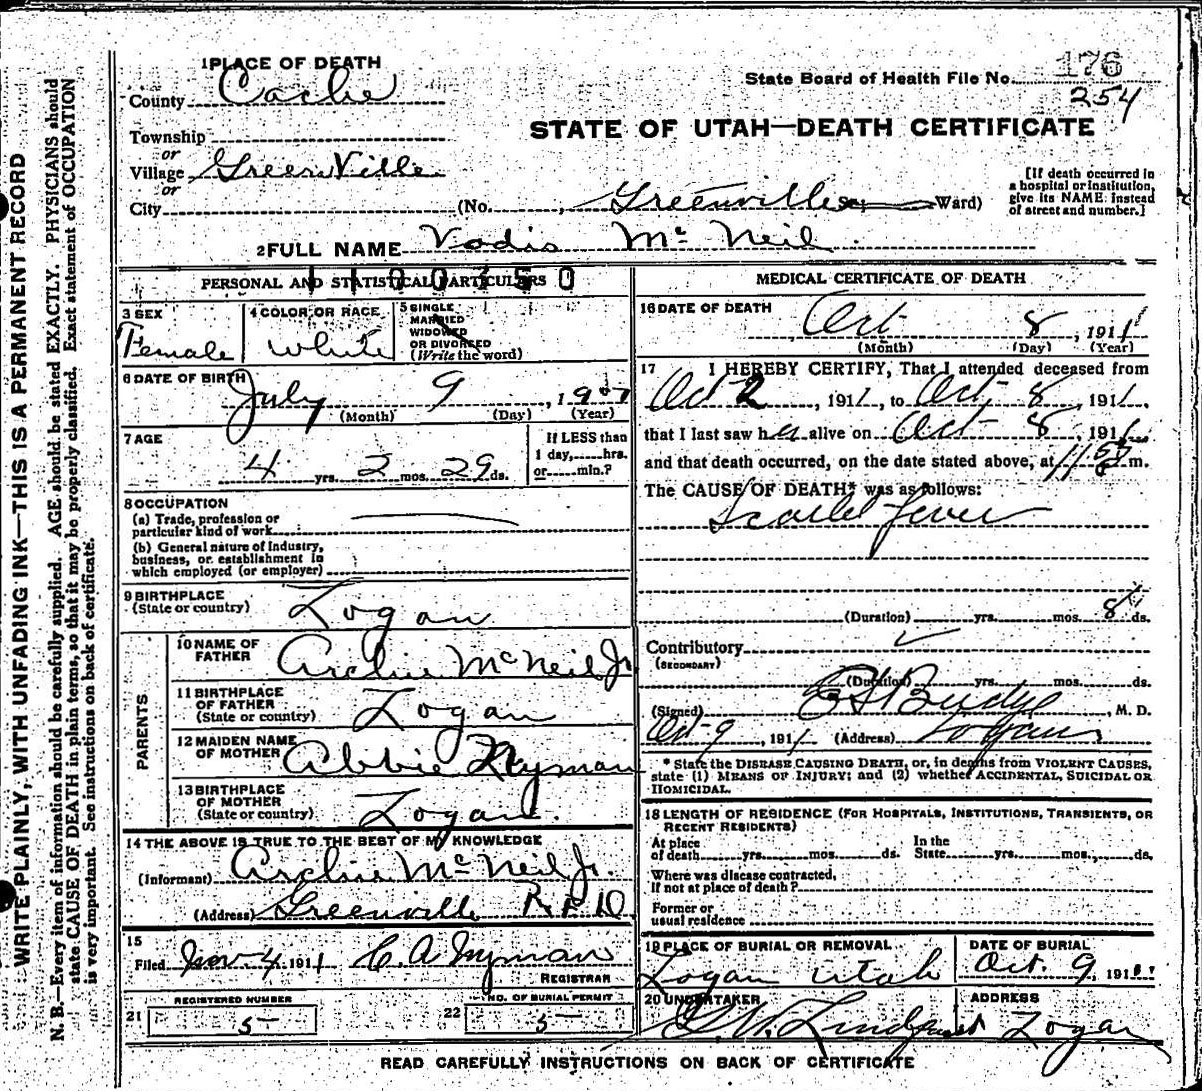 WRITE PLAINLY, WITH UNFADING INK—THIS IS A PERMANENT RECORD
N. B.—Every item of information should be carefully supplied. AGE should be stated EXACTLY. PHYSICIANS should
state CAUSE OF DEATH in plain terms, so that it may be properly classified. Exact statement of OCCUPATION
is very important. See instructions on back of certificate.
1 PLACE OF DEATH
County Cache
Township
or
Village GreenVille
or
City (No. , Greenville St.; Ward)
State Board of Health File No. 176
254
STATE OF UTAH—DEATH CERTIFICATE
[If death occurred in
a hospital or institution,
give its NAME instead
of street and number.]
2 FULL NAME Vadis Mc Neil
1100350
PERSONAL AND STATISTICAL PARTICULARS
3 SEX
Female
4 COLOR OR RACE
White
5 SINGLE
MARRIED
WIDOWED
OR DIVORCED
(Write the word)
6 DATE OF BIRTH
July 9, 1907
(Month) (Day) (Year)
7 AGE
4 yrs. 2 mos. 29 ds.
If LESS than
1 day, hrs.
or min.?
8 OCCUPATION
(a) Trade, profession or
particular kind of work
(b) General nature of industry,
business, or establishment in
which employed (or employer)
9 BIRTHPLACE
(State or country) Logan
PARENTS
10 NAME OF
FATHER Archie McNeil Jr.
11 BIRTHPLACE
OF FATHER
(State or country) Logan
12 MAIDEN NAME
OF MOTHER Abbie Nyman
13 BIRTHPLACE
OF MOTHER
(State or country) Logan.
14 THE ABOVE IS TRUE TO THE BEST OF MY KNOWLEDGE
(Informant) Archie McNeil Jr.
(Address) Greenville R.F.D.
15
Filed Nov 4 1911 C. A. Nyman
REGISTRAR
21 REGISTERED NUMBER
5
22 NO. OF BURIAL PERMIT
5
MEDICAL CERTIFICATE OF DEATH
16 DATE OF DEATH
Oct 8, 1911
(Month) (Day) (Year)
17 I HEREBY CERTIFY, That I attended deceased from
Oct 2, 1911, to Oct. 8, 1911,
that I last saw h er alive on Oct 8, 1911
and that death occurred, on the date stated above, at 11 m.
The CAUSE OF DEATH* was as follows:
Scarlet fever
(Duration) yrs. mos. 8 ds.
Contributory
(SECONDARY)
(Duration) yrs. mos. ds.
(Signed) Budge, M. D.
Oct 9, 1911 (Address) Logan
* State the DISEASE CAUSING DEATH, or, in deaths from VIOLENT CAUSES,
state (1) MEANS OF INJURY; and (2) whether ACCIDENTAL, SUICIDAL OR
HOMICIDAL.
18 LENGTH OF RESIDENCE (FOR HOSPITALS, INSTITUTIONS, TRANSIENTS, OR
RECENT RESIDENTS)
At place
of death yrs. mos. ds.
In the
State yrs. mos. ds.
Where was disease contracted,
if not at place of death?
Former or
usual residence
19 PLACE OF BURIAL OR REMOVAL
Logan Utah
DATE OF BURIAL
Oct. 9, 1911
20 UNDERTAKER
G. W. Lindquist
ADDRESS
Logan
READ CAREFULLY INSTRUCTIONS ON BACK OF CERTIFICATE